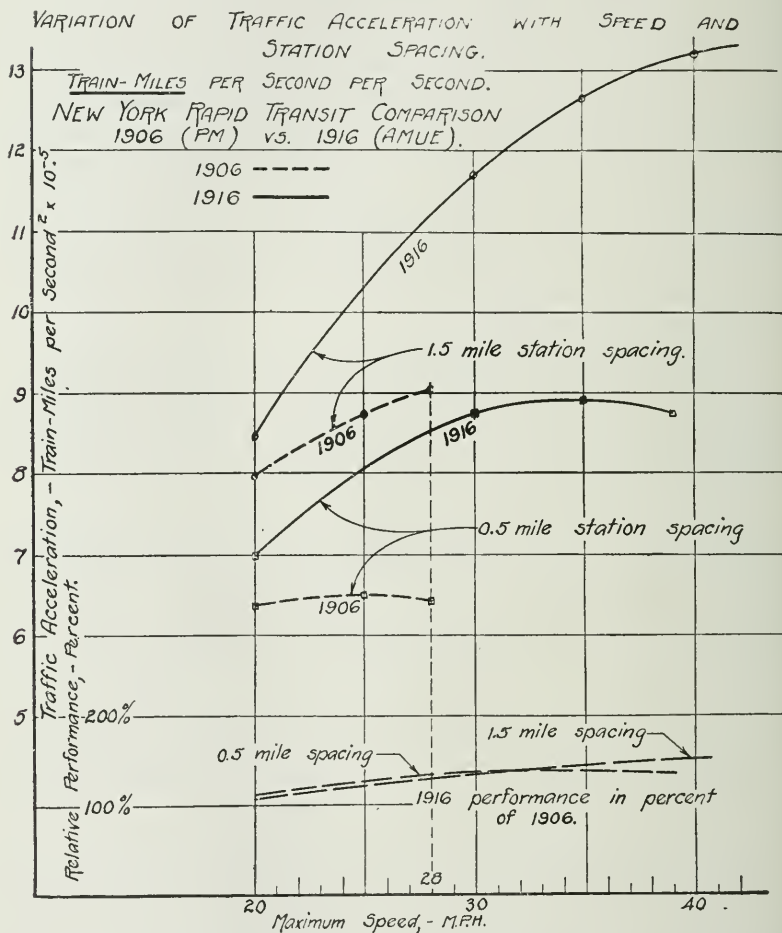 VARIATION OF TRAFFIC ACCELERATION WITH SPEED AND
STATION SPACING.
TRAIN-MILES PER SECOND PER SECOND.
NEW YORK RAPID TRANSIT COMPARISON
1906 (PM) VS. 1916 (AMUE).
1906
1916
13
12
11
10
9
8
7
6
5
Traffic Acceleration, - Train-Miles per Second² x 10⁻⁵
Relative Performance, - Percent.
1916
1.5 mile station spacing.
1906
1916
0.5 mile station spacing
1906
200%
100%
0.5 mile spacing
1.5 mile spacing
1916 performance in percent
of 1906.
28
20
30
40
Maximum Speed, - M.P.H.